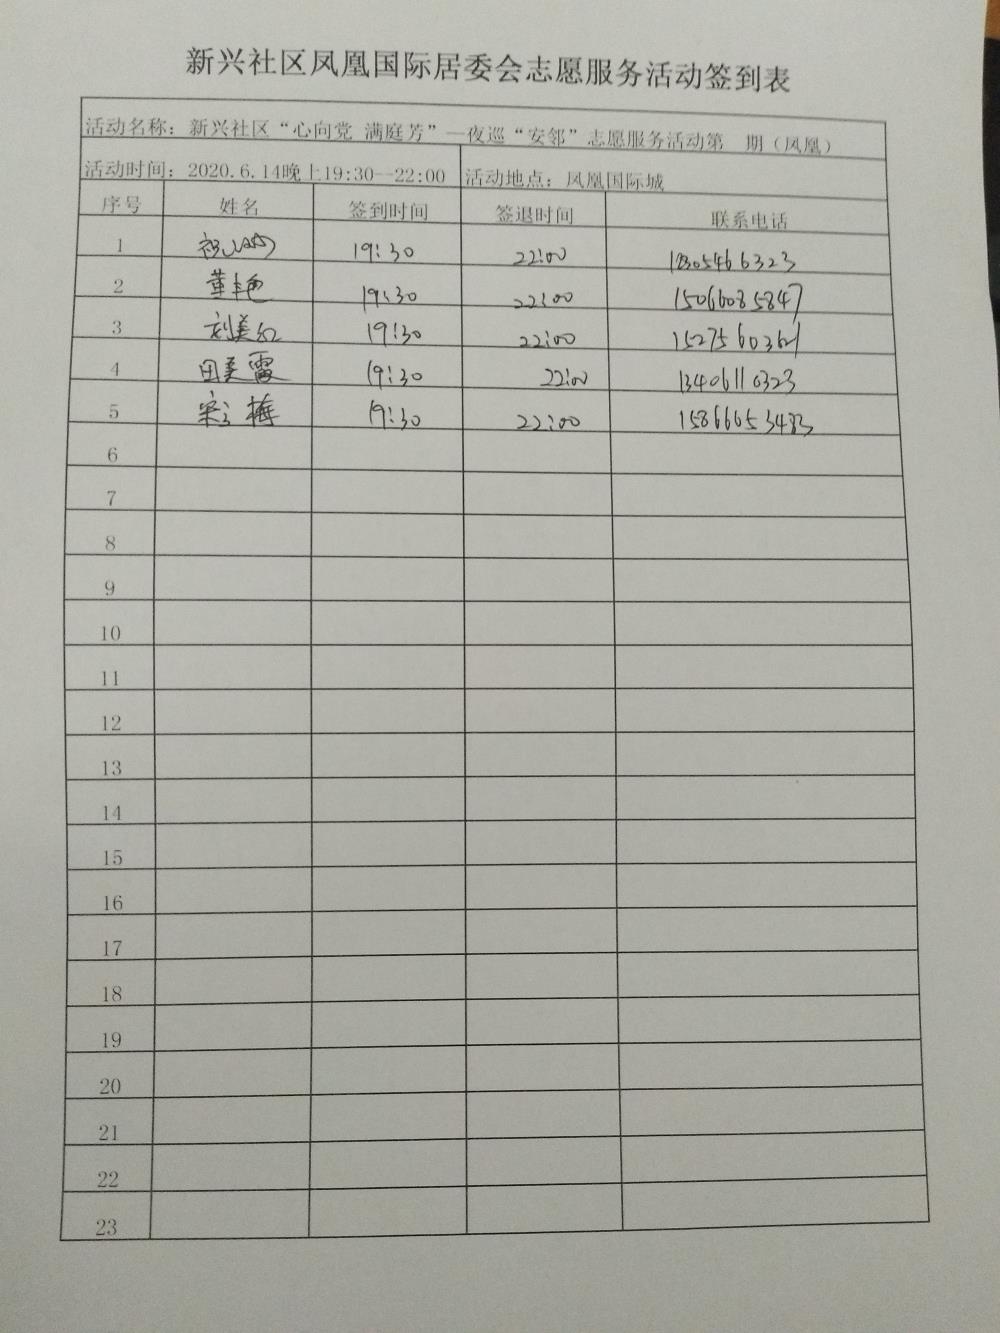 新兴社区凤凰国际居委会志愿服务活动签到表
活动名称：新兴社区“心向党 满庭芳”—夜巡“安邻”志愿服务活动第 期（凤凰）
活动时间：2020.6.14晚上19:30--22:00 活动地点：凤凰国际城
序号 姓名 签到时间 签退时间 联系电话
1 19:30 22:00 18305466323
2 董艳 19:30 22:00 15066085847
3 刘美红 19:30 22:00
4 田美霞 19:30 22:00 13406110323
5 宋梅 19:30 22:00 15866653483
6
7
8
9
10
11
12
13
14
15
16
17
18
19
20
21
22
23